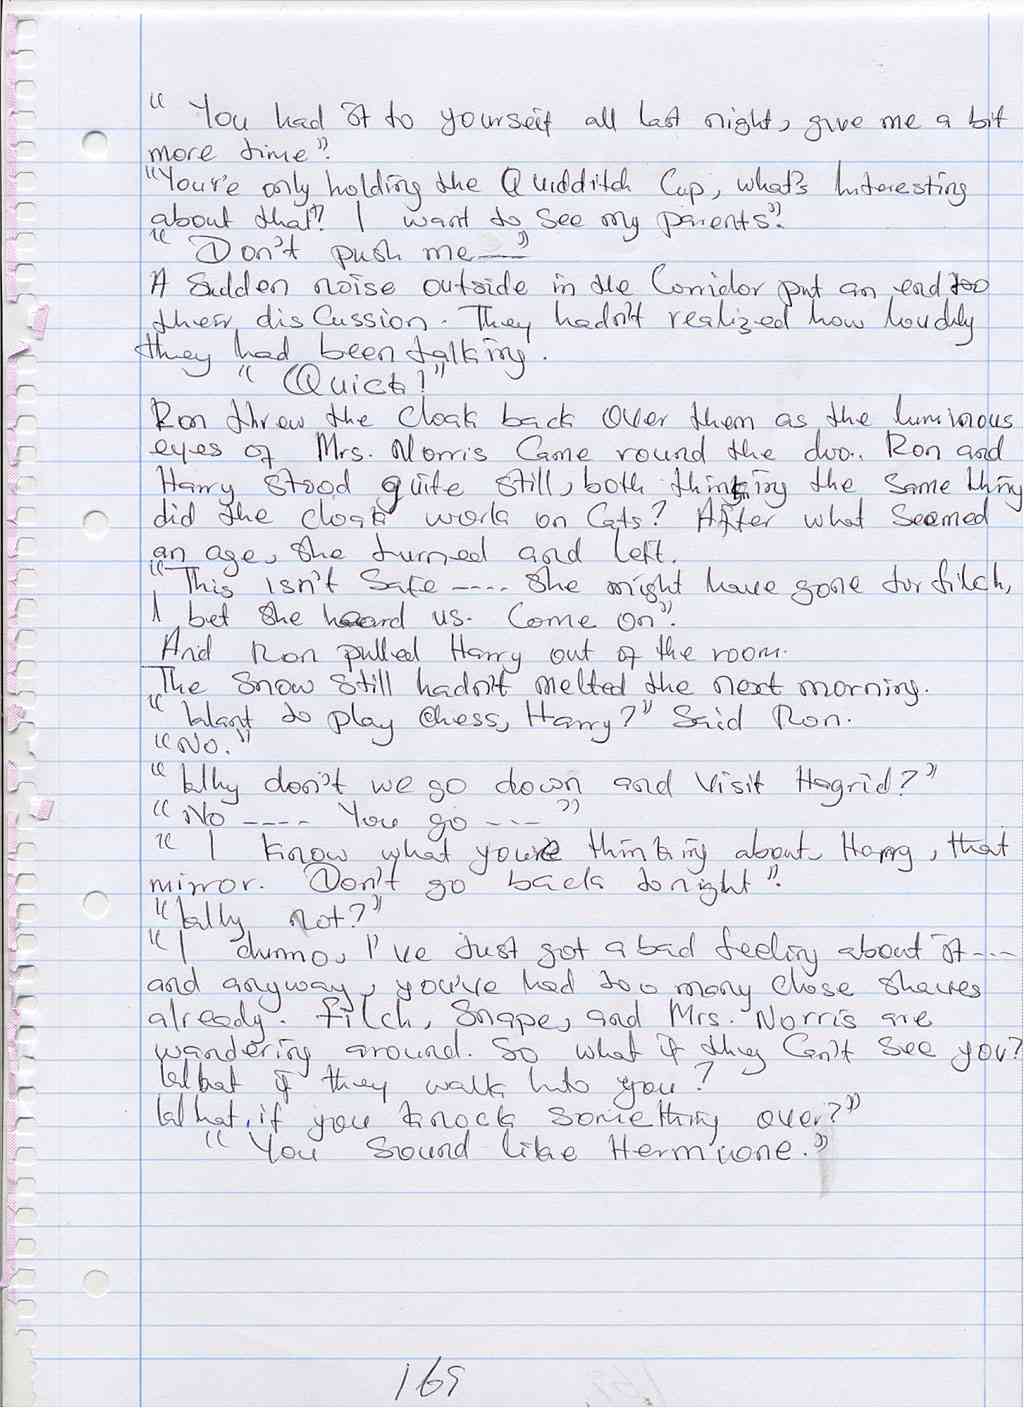 “ You had it to yourself all last night, give me a bit
more time”.
“You're only holding the Quidditch Cup, what's interesting
about that? I want to see my parents”.
“ Don't push me ---”
A Sudden noise outside in the Corridor put an end too
their discussion. They hadn't realized how loudly
they had been talking.
“ Quick!”
Ron threw the cloak back over them as the luminous
eyes of Mrs. Norris Came round the doo.. Ron and
Harry stood quite still, both thinking the same thing
did the cloak work on Cats? After what seemed
an age, she turned and left.
“This isn't Safe ---- She might have gone for filch,
I bet she heard us. Come on”.
And Ron pulled Harry out of the room.
The snow still hadn't melted the next morning.
“ Want to play Chess, Harry?” Said Ron.
“No.”
“ Why don't we go down and Visit Hagrid?”
“ No ---- You go ---”
“ I know what you're thinking about Harry, that
mirror. Don't go back tonight”.
“Why not?”
“I dunno, I've Just got a bad feeling about it ---
and anyway, you've had too many Close shaves
already. Filch, Snape, and Mrs. Norris are
wandering around. So what if they Can't see you?
What if they walk into you?
What, if you knock something over?”
“ You Sound like Hermione.”
169